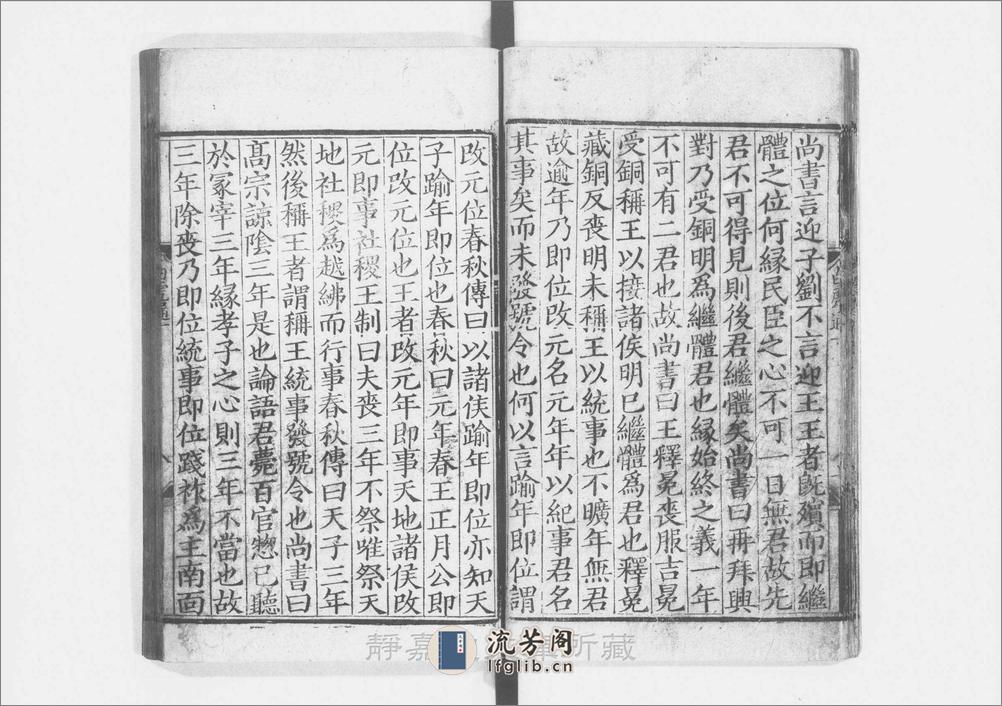 尚書言迎子劉不言迎王王者旣殯而即繼
體之位何緣民臣之心不可一日無君故先
君不可得見則後君繼體矣尚書曰再拜興
對乃受銅明爲繼體君也緣始終之義一年
不可有二君也故尚書曰王釋冕喪服吉冕
受銅稱王以接諸侯明已繼體爲君也釋冕
藏銅反喪明未稱王以統事也不曠年無君
故逾年乃即位改元名元年年以紀事君名
其事矣而未發號令也何以言踰年即位謂
改元位春秋傳曰以諸侯踰年即位亦知天
子踰年即位也春秋曰元年春王正月公即
位改元位也王者改元年即事天地諸侯改
元即事社稷王制曰夫喪三年不祭唯祭天
地社稷爲越紼而行事春秋傳曰天子三年
然後稱王者謂稱王統事發號令也尚書曰
高宗諒陰三年是也論語君薨百官惣已聽
於冢宰三年緣孝子之心則三年不當也故
三年除喪乃即位統事即位踐祚爲主南面
靜嘉
所藏
流芳阁
lfglib.cn